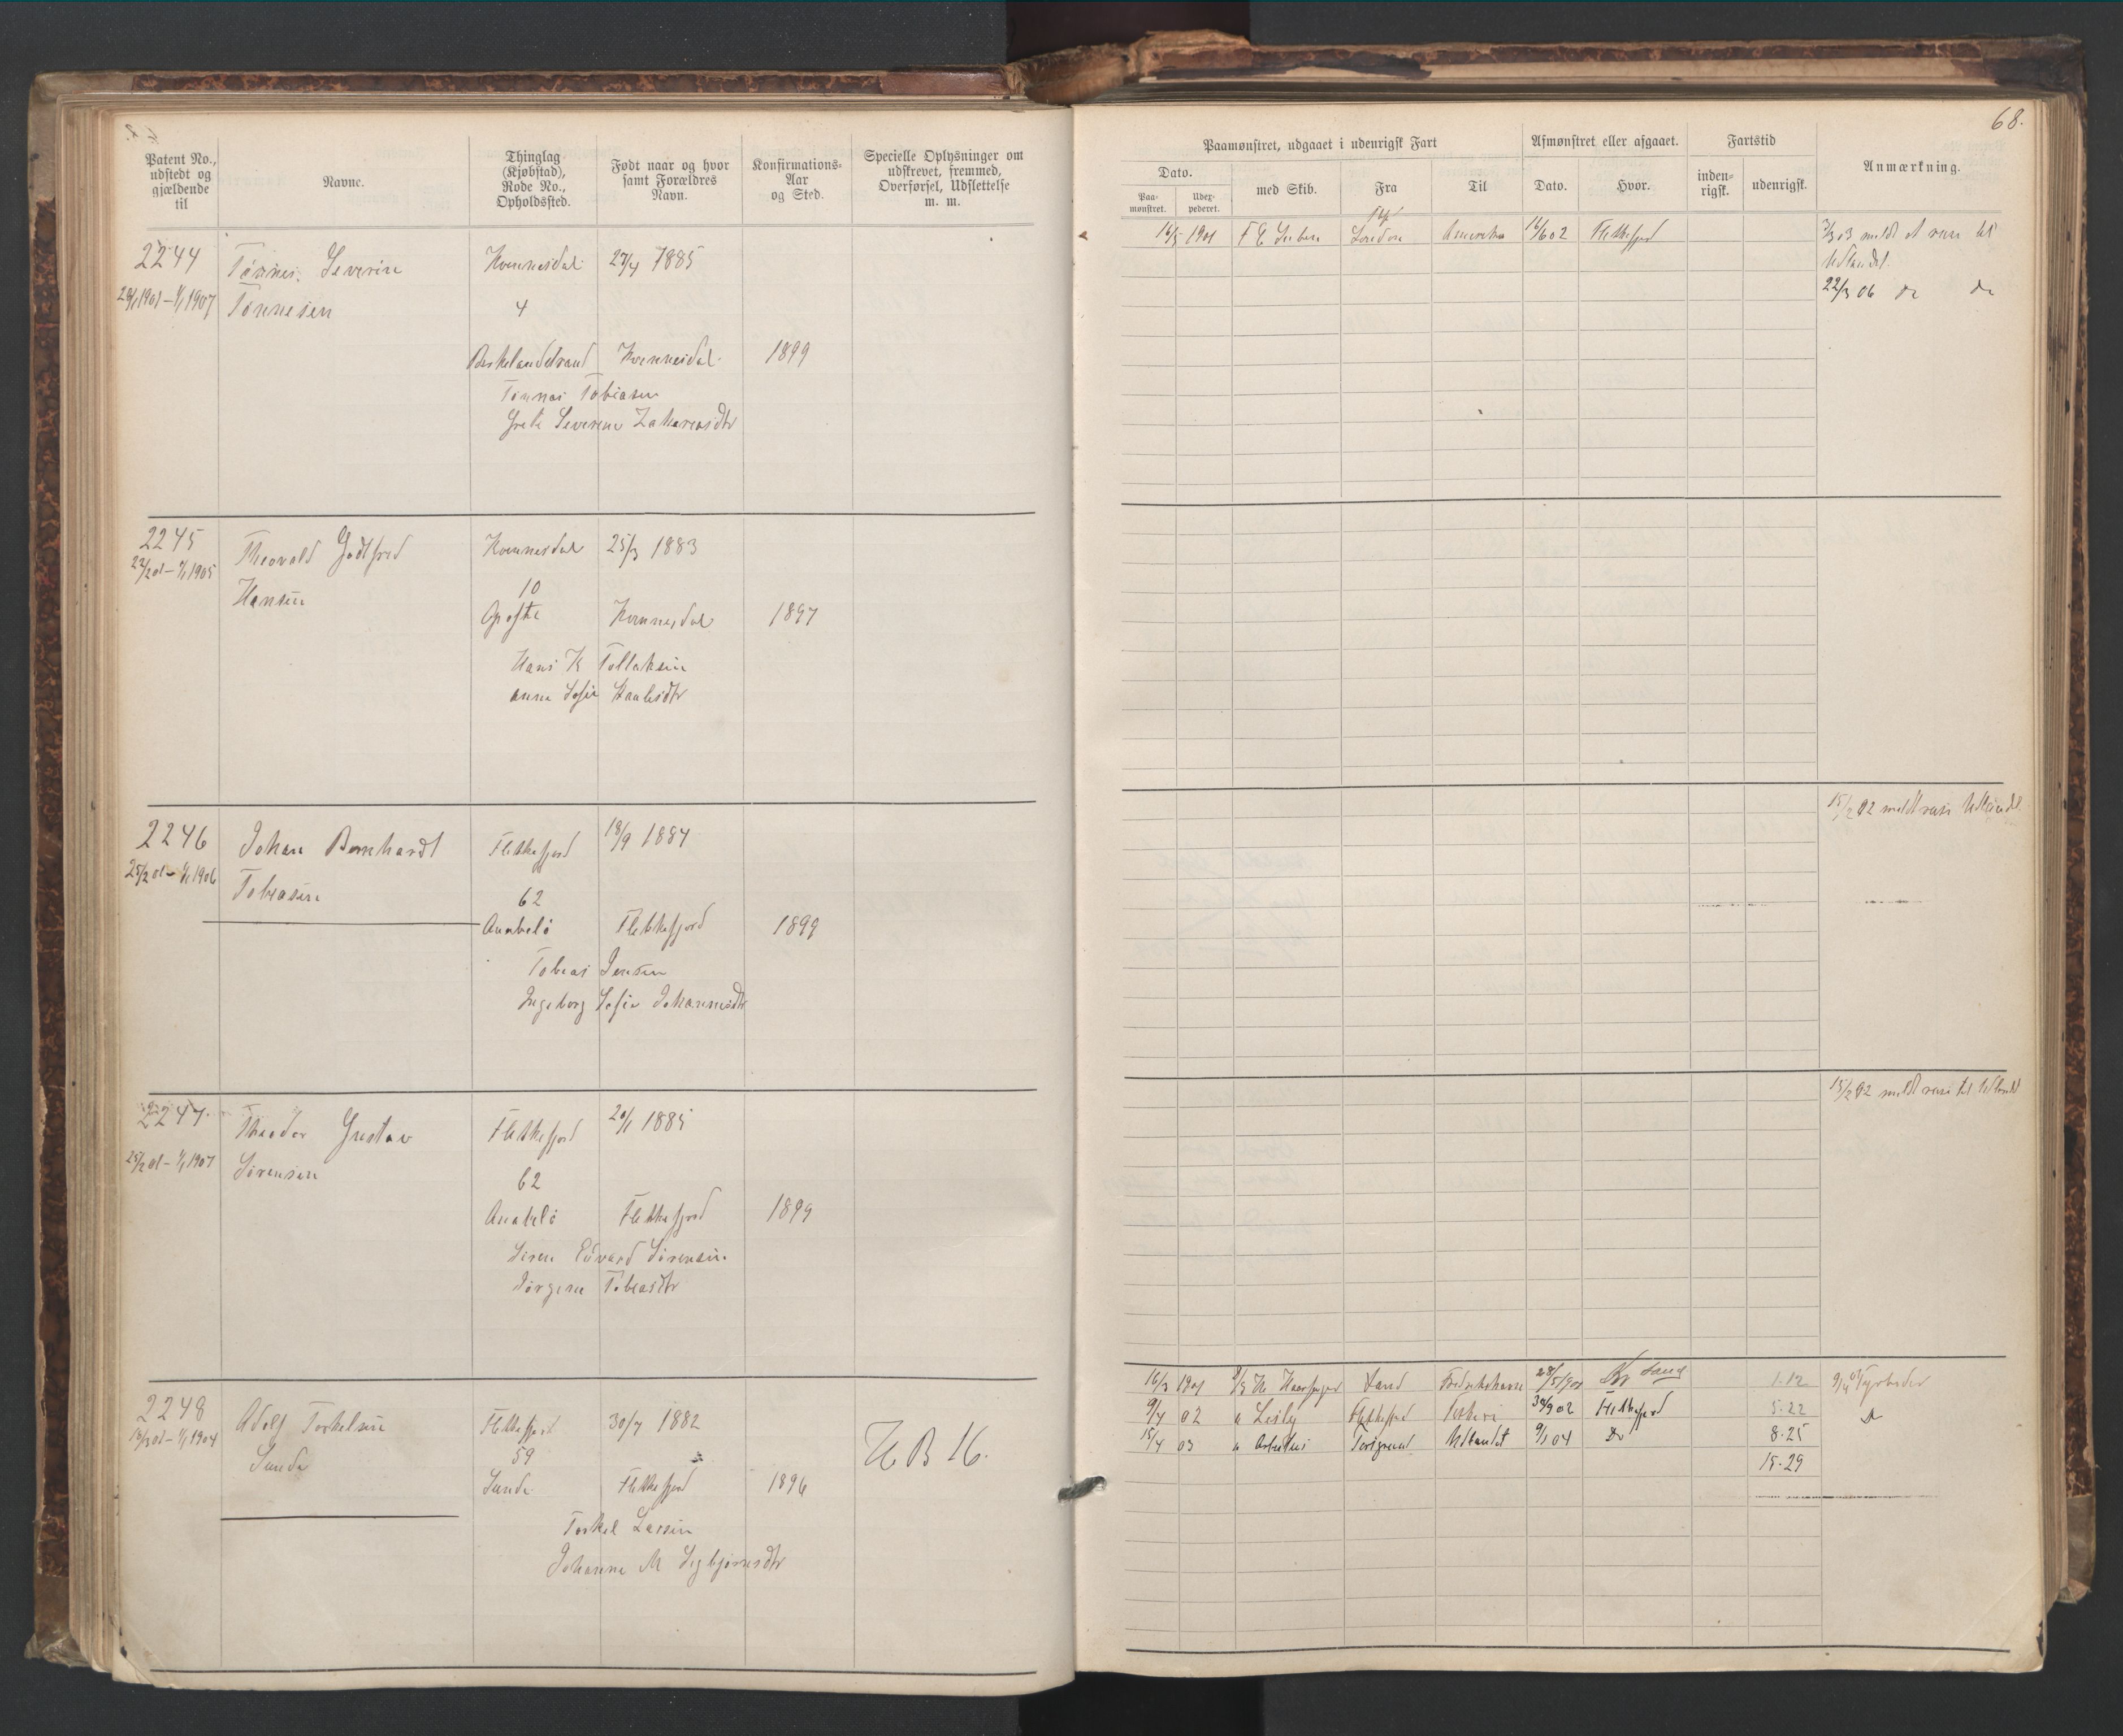 68.
Patent No., udstedt og gjældende til
Navne.
Thinglag (Kjøbstad), Rode No., Opholdssted.
Født naar og hvor samt Forældres Navn.
Konfirmations-Aar og Sted.
Specielle Oplysninger om udskrevet, fremmed, Overførsel, Udslettelse m. m.
Paamønstret, udgaaet i udenrigsk Fart
Dato.
Paa-mønstret.
Udex-pederet.
med Skib.
Fra
Til
Afmønstret eller afgaaet.
Dato.
Hvor.
Fartstid
inden-rigsk.
udenrigsk.
Anmærkning.
2244
Tønnes Severin
Kvinnesdal
27/4 1885
1901 – 1/1 1907
Tønnesen
4
Birkelandstrand
Kvinnesdal
1899
Tønnes Tobiasen
Grete Severine Zakariasdtr
16/5 1901
London
Amerika
16/6 02
Flekkefjord
7/3 03 meldt at reise til
Udlandet.
22/3 06 do do
2245
Theovald Godtfred
Kvinnesdal
25/3 1883
22/2 01 – 1/1 1905
Hansen
10
Kvinnesdal
1897
Hans K Tollaksen
Anna Sofie Staalesdtr
2246
Johan Bernhardt
Flekkefjord
18/9 1884
25/2 01 – 1/1 1906
Tobiasen
62
Anabelø
Flekkefjord
1899
Tobias Jensen
Ingeborg Sofie Johannesdtr
15/2 02 meldt reise Udlandet
2247
Theodor Gustav
Flekkefjord
20/1 1885
25/2 01 – 1/1 1907
Sørensen
62
Anabelø
Flekkefjord
1899
Søren Edvard Sørensen
Jørgine Tobiasdtr
15/2 02 meldt reise til Udlandet
2248
Adolf Torkelsen
Flekkefjord
30/7 1882
16/3 01 – 1/1 1904
Sunde
59
Sunde
Flekkefjord
1896
Torkel Larsen
Johanne M Sigbjørnsdtr
H B 16.
16/3 1901
Sand
28/5 1901
Kr sand
1.12
Fyrbøder
9/4 02
Flekkefjord
30/9 02
Flekkefjord
5.22
15/4 03
Udlandet
9/1 04
Do
8.25
15.29